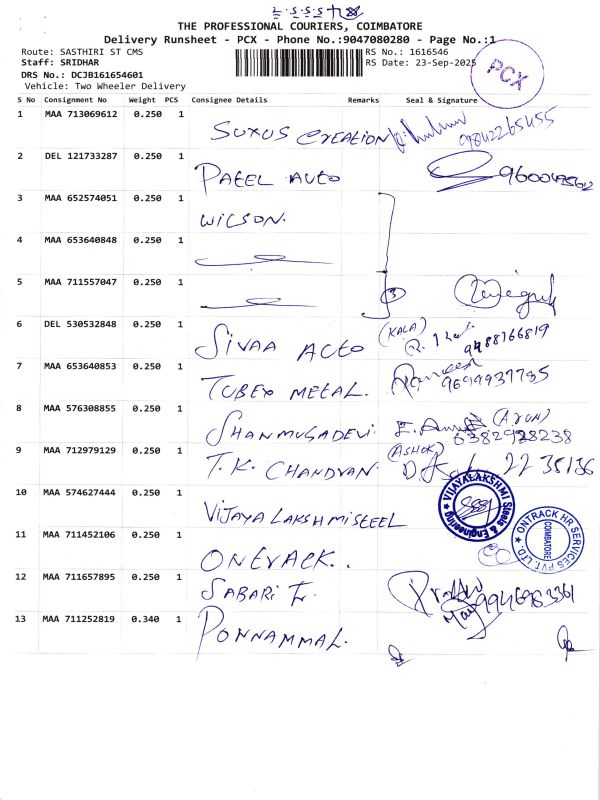 THE PROFESSIONAL COURIERS, COIMBATORE
Delivery Runsheet - PCX - Phone No.:9047080280 - Page No.:1
Route: SASTHIRI ST CMS
RS No.: 1616546
Staff: SRIDHAR
RS Date: 23-Sep-2025
DRS No.: DCJB161654601
Vehicle: Two Wheeler Delivery
PCX
S No Consignment No Weight PCS Consignee Details Remarks Seal & Signature
1 MAA 713069612 0.250 1 SUXUS CREATION 9842265455
2 DEL 121733287 0.250 1 PATEL AUTO
3 MAA 652574051 0.250 1 WILSON.
4 MAA 653640848 0.250 1
5 MAA 711557047 0.250 1 3
6 DEL 530532848 0.250 1 SIVAA AUTO (KALA) 9488766819
7 MAA 653640853 0.250 1 TUBEX METAL. 9699937785
8 MAA 576308855 0.250 1 SHANMUGADEVI. (ARUN) 6382928238
9 MAA 712979129 0.250 1 T.K. CHANDVAN. (ASHOK) 2235136
10 MAA 574627444 0.250 1 VIJAYALAKSHMI STEEL
VIJAYALAKSHMI Steels & Engineering
11 MAA 711452106 0.250 1 ONTRACK..
ONTRACK HR SERVICES PVT. LTD
COIMBATORE
12 MAA 711657895 0.250 1 SABARI
13 MAA 711252819 0.340 1 PONNAMMAL.